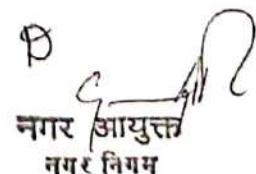 नगर आयुक्त
नगर निगम